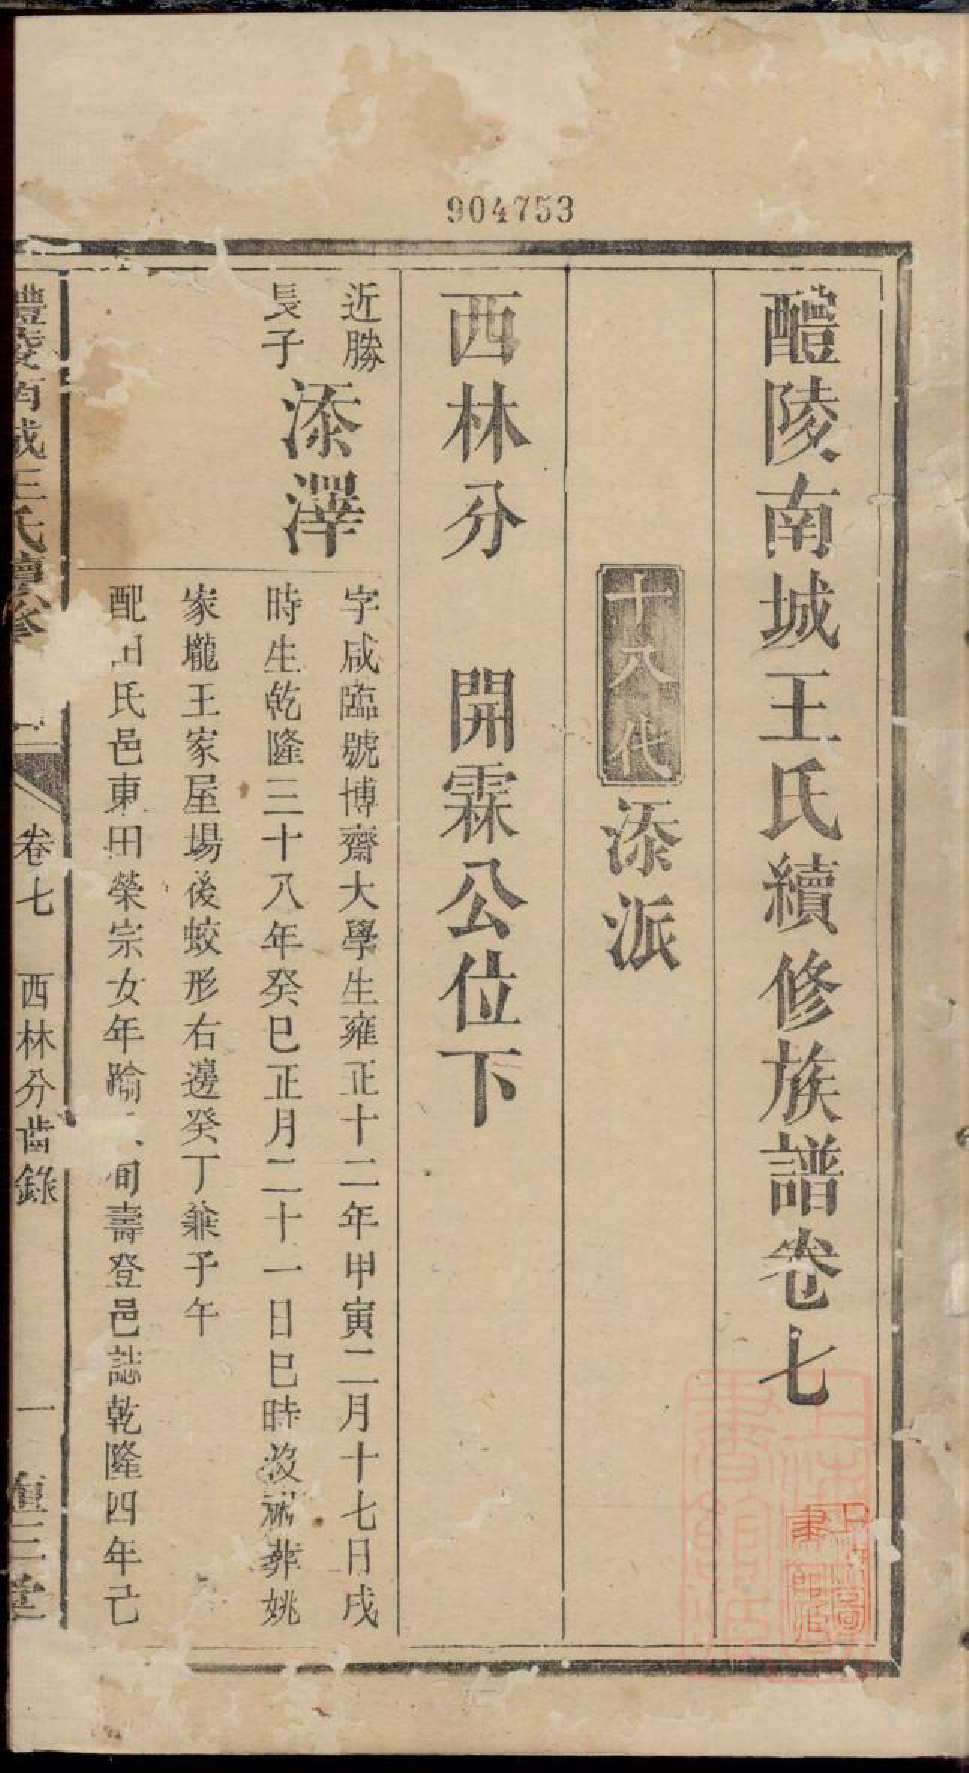 904753
醴陵南城王氏續修族譜卷七
十八代 添派
西林分 開霖公位下
近勝
長子
添澤
字咸臨號博齋大學生雍正十二年甲寅二月十七日戌
時生乾隆三十八年癸巳正月二十一日巳時没祔葬姚
家壠王家屋場後蛟形右邊癸丁兼子午
配 氏邑東田榮宗女年踰 旬壽登邑誌乾隆四年己
醴陵南城王氏續修
卷七 西林分齒錄
一 三堂